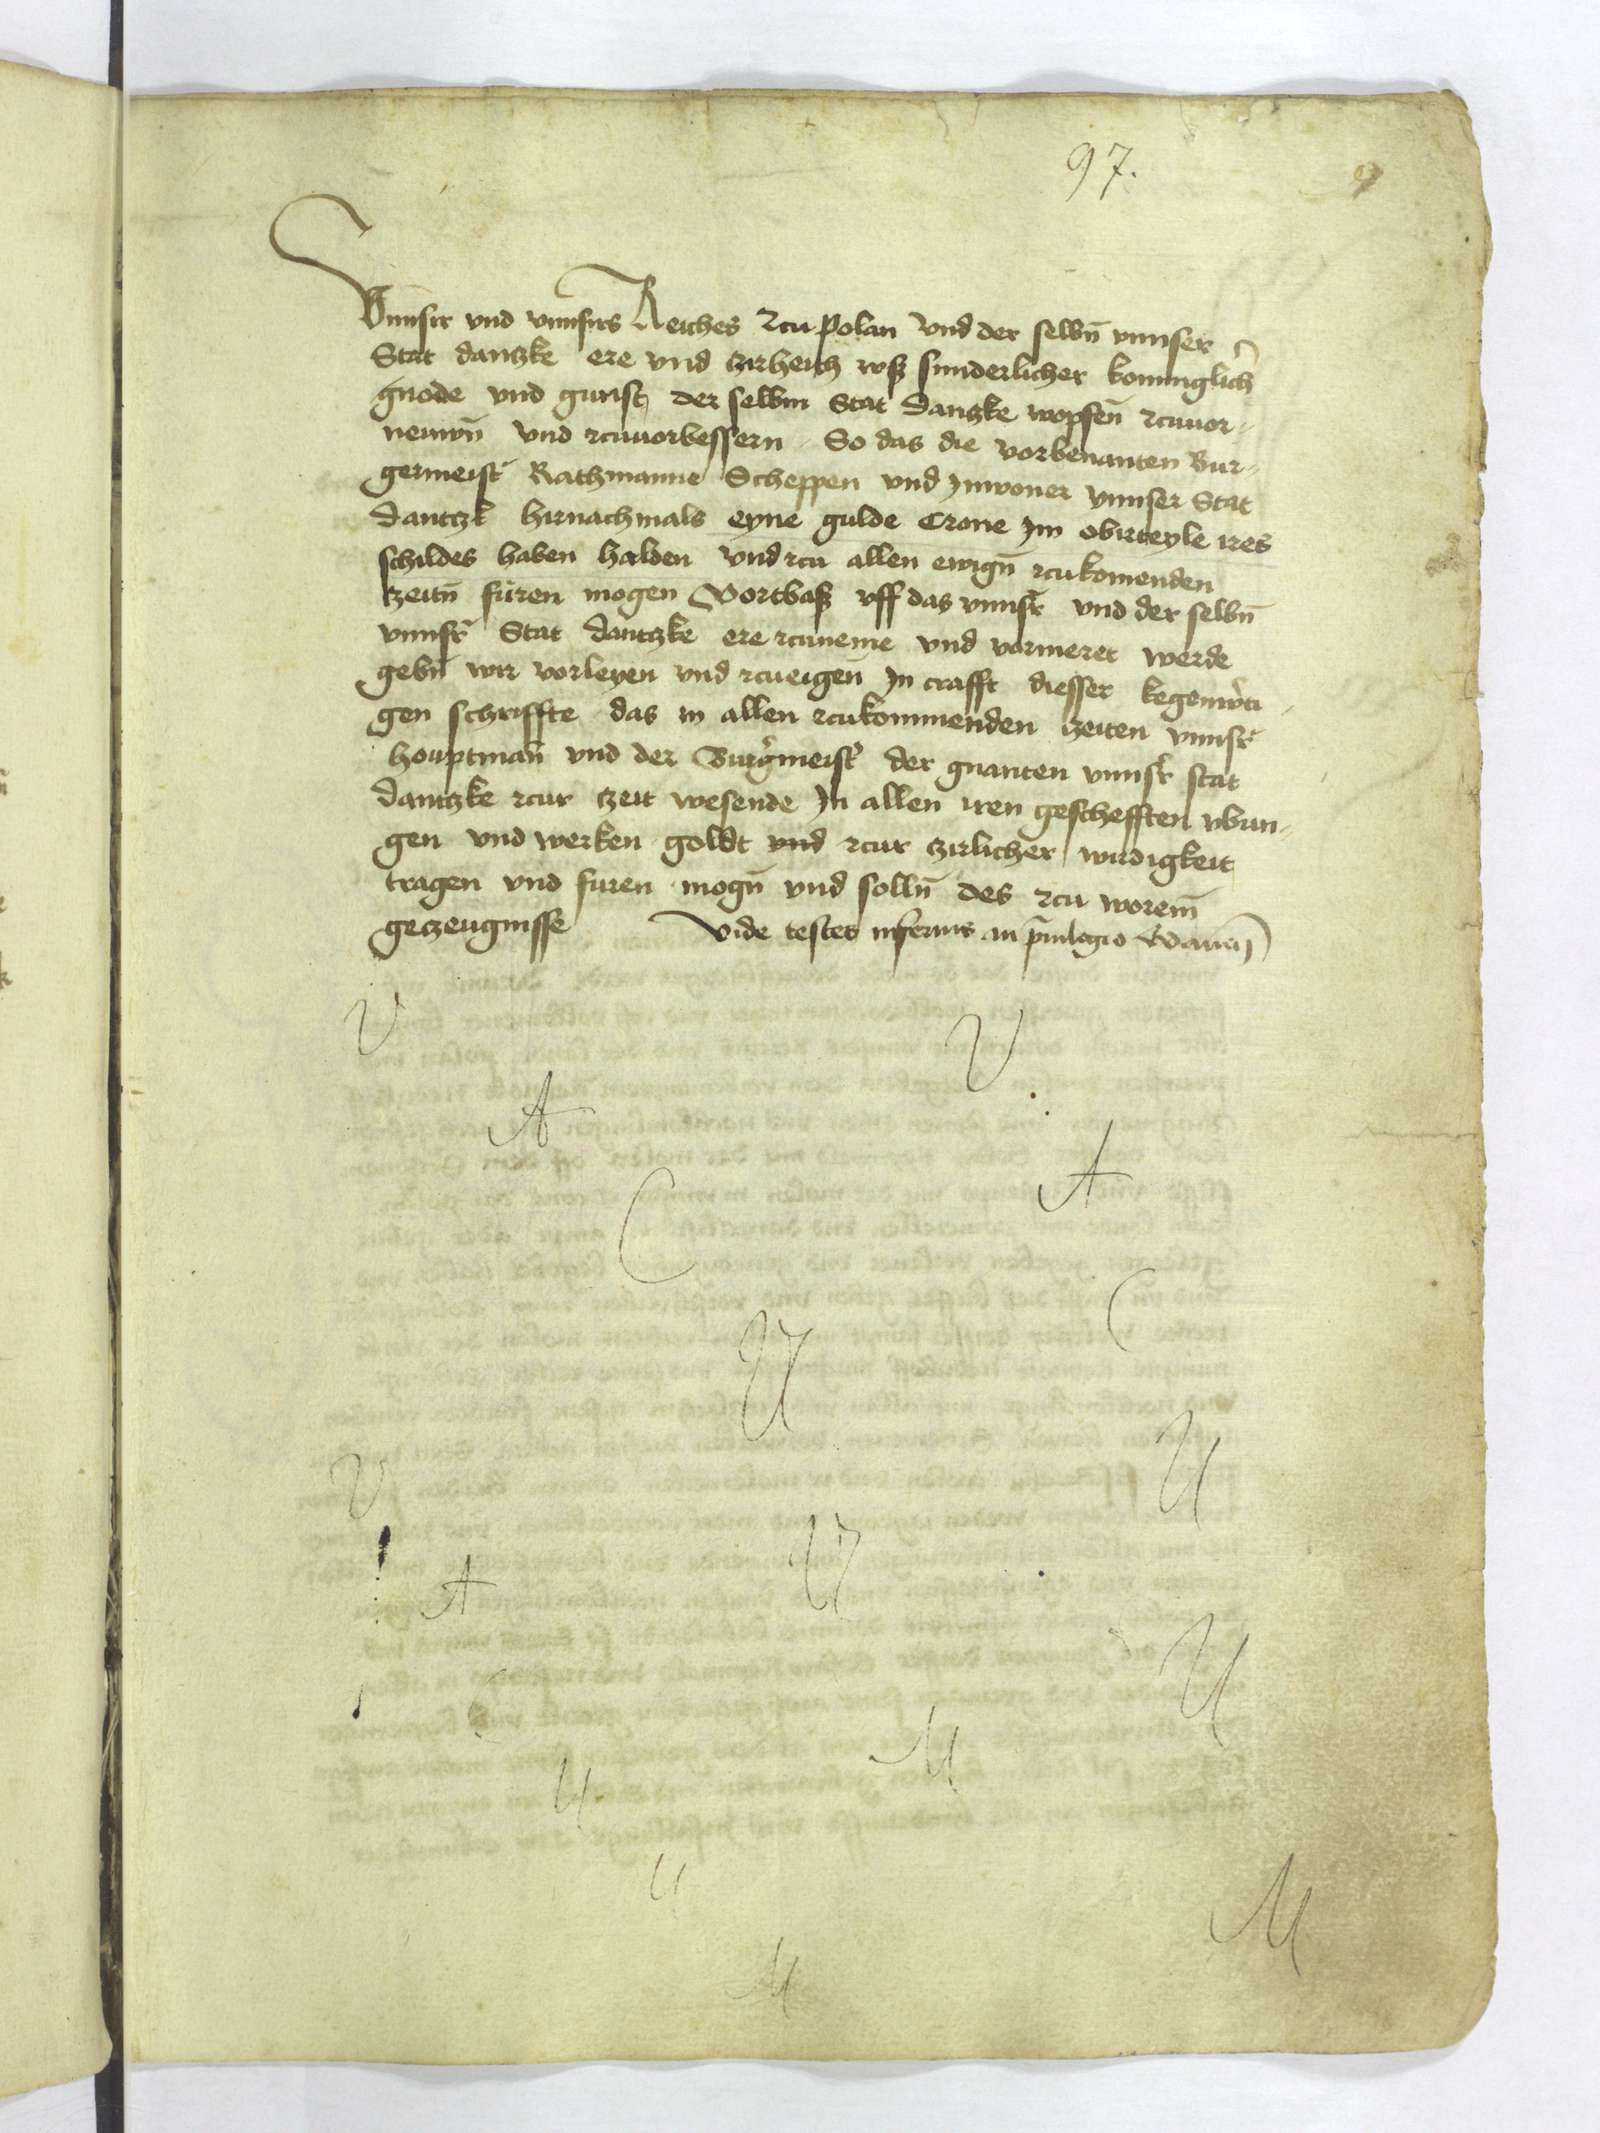 97.
Vnnsir vnd vnnsirs Reiches zcu Polan vnd der selbn̄ vnnser
Stat dantzke ere vnd czirheith vß sunderlicher koninglich̄
gnode vnd gunst der selbin Stat Dantzke wopfen̄ zcuuor-
neuwn̄ vnd zcuuorbessern So das die vorbenanten Bur-
germeist̄ Rathmanne Scheppen vnd Inwoner vnnser Stat
Dantczk hirnachmals eyne gulde Crone Im obirteyle ires
schildes haben halden vnd zcu allen ewign̄ zcukomenden
tzeitn̄ furen mogen Vortbaß vff das vnnsr̄ vnd der selbn̄
vnnsr̄ Stat Dantczke ere zcuneme vnd vormeret werde
gebn̄ wir vorleyen vnd zcueigen̄ In crafft diesser kegenw̄ti-
gen schriffte das in allen zcukommenden tzeiten vnnsr̄
houptman̄ vnd der Burḡmeist̄ der gnanten vnnsr̄ stat
Dantzke zcur tzeit wesende In allen iren geschefften vbun-
gen vnd werken goldt vnd zcur czirlicher wirdigkeit
tragen vnd furen mogn̄ vnd solln̄ des zcu worem̄
geczeugnisse Vide testes inferius in p̄uilegio
V V
A A
C C
U U
V U
A U
C M
U
U M
M